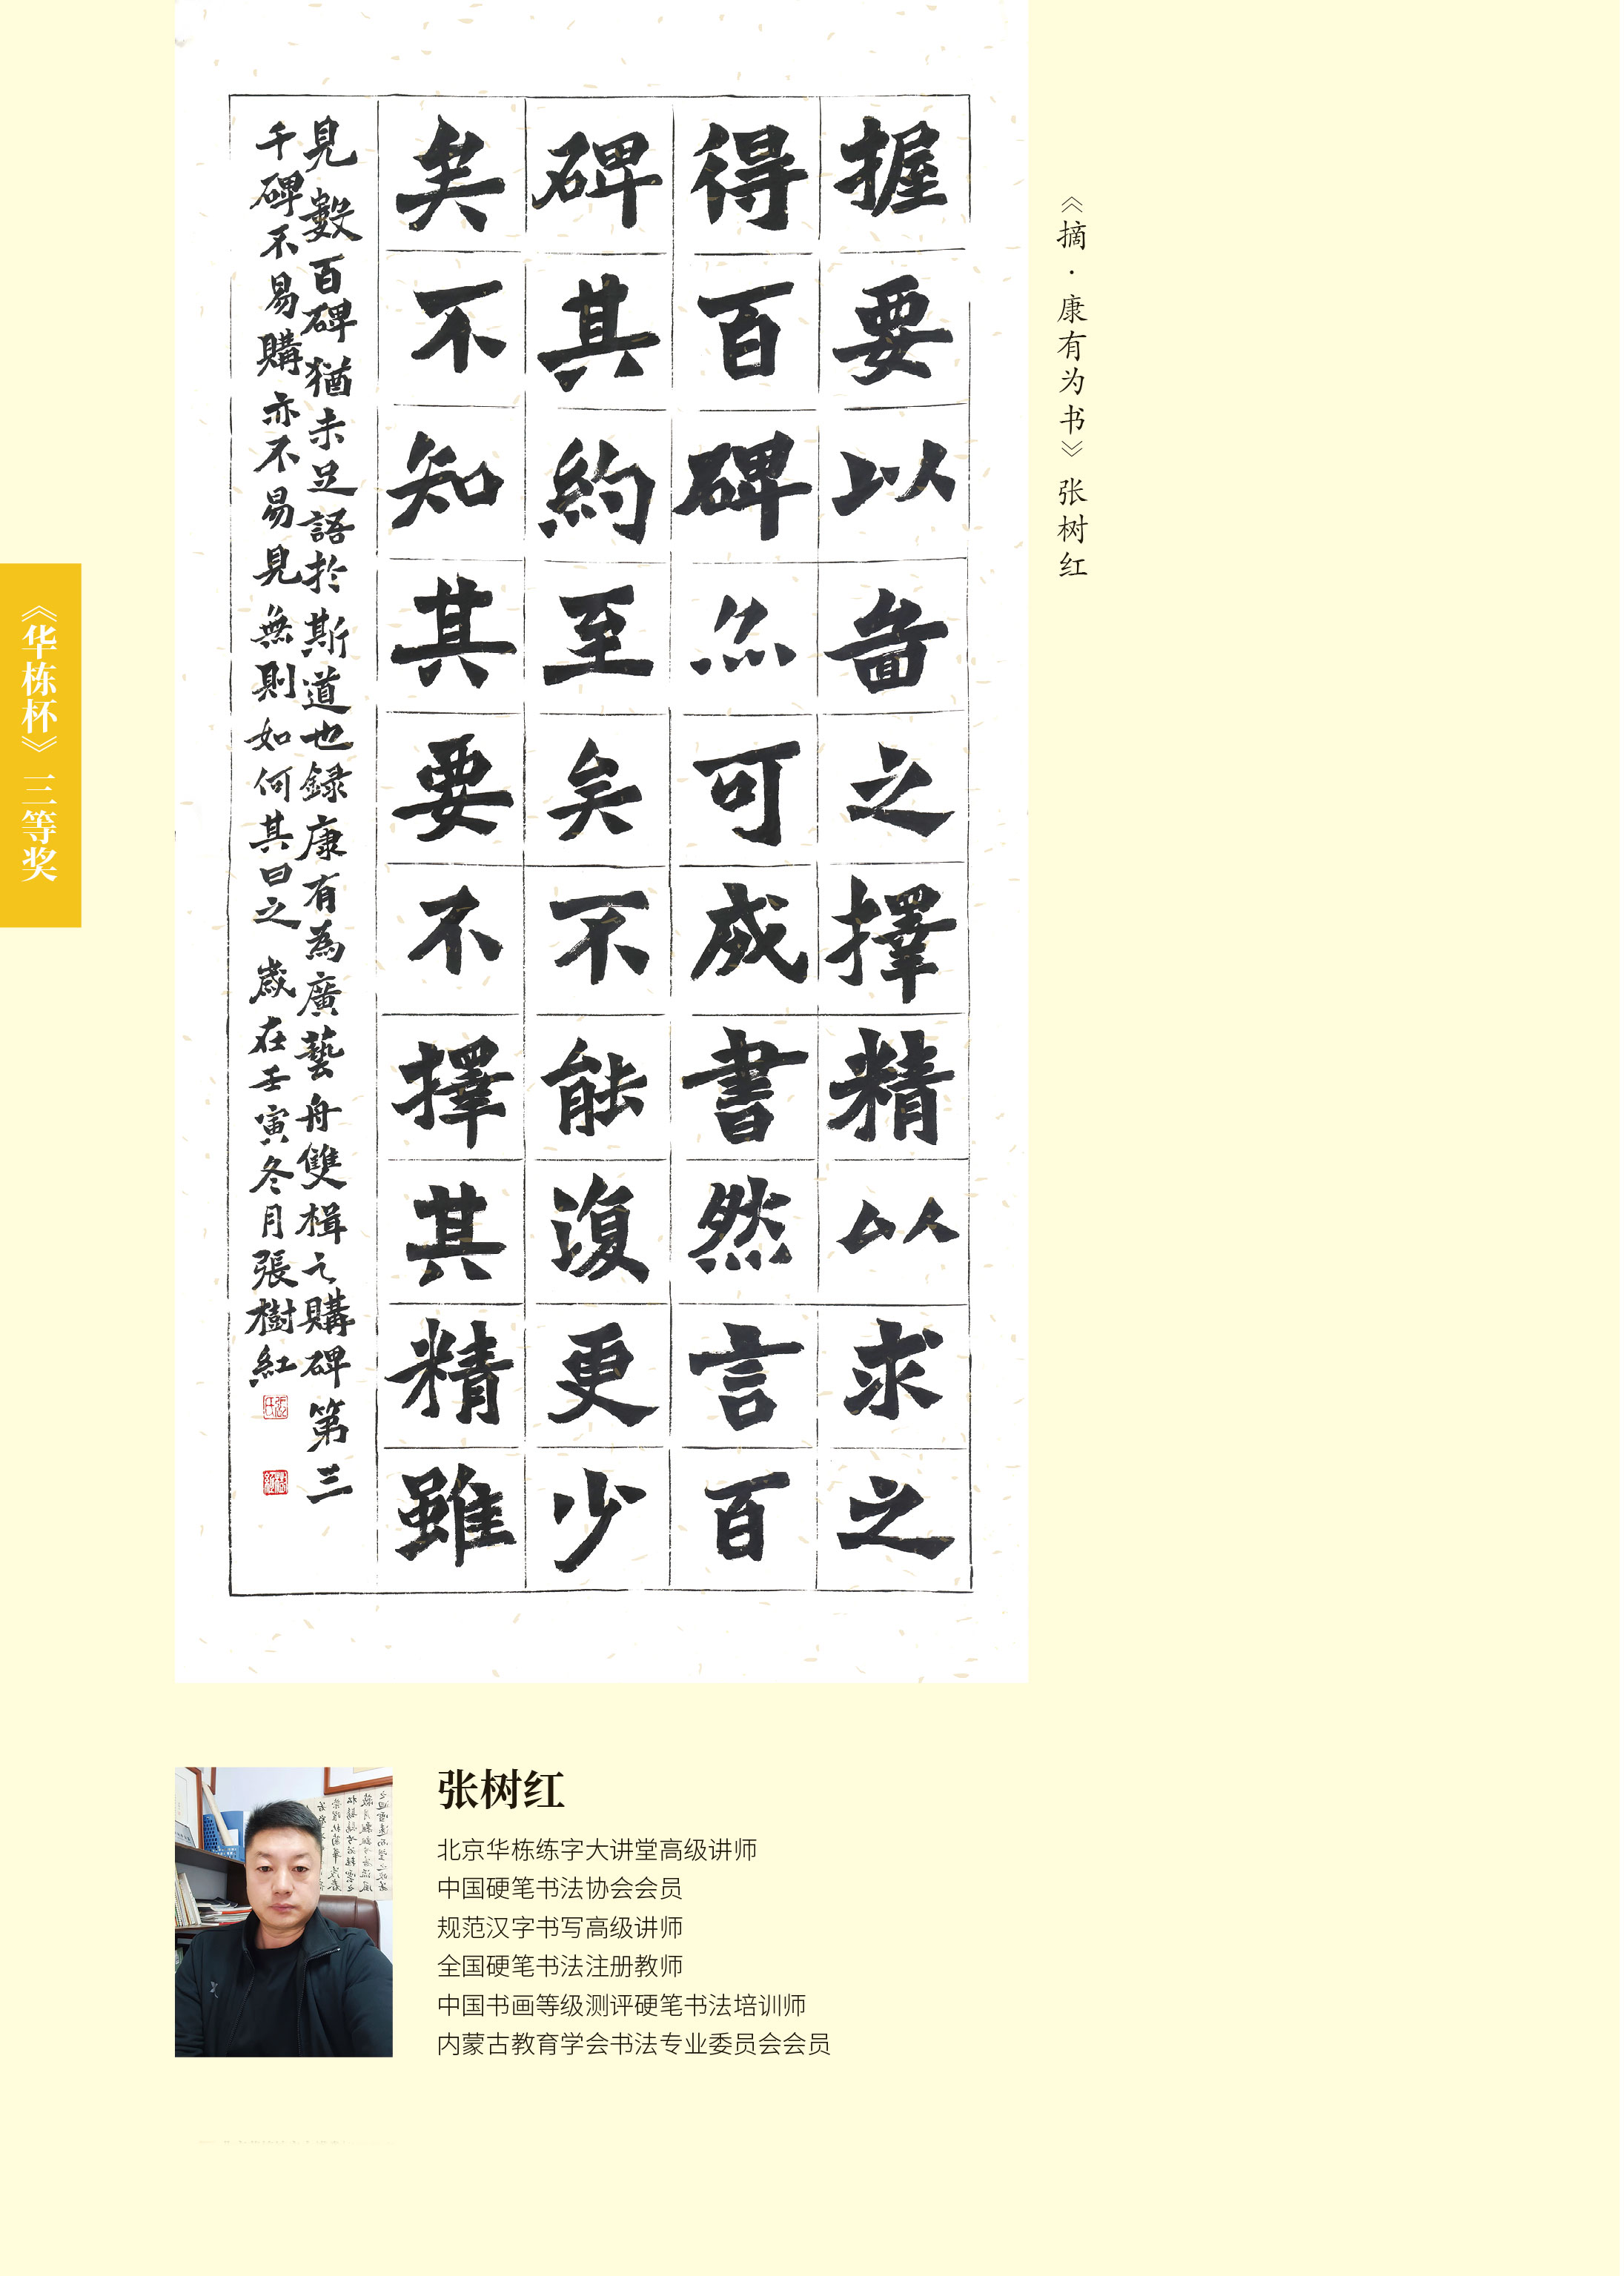 《华栋杯》三等奖
《摘·康有为书》张树红
握要以啚之擇精以求之
得百碑亦可成書然言百
碑其約至矣不能復更少
矣不知其要不擇其精雖
見數百碑猶未足語於斯道也録康有為廣藝舟雙楫之購碑第三
千碑不易購亦不易見無則如何其曰之 歲在壬寅冬月張樹紅
张树红
北京华栋练字大讲堂高级讲师
中国硬笔书法协会会员
规范汉字书写高级讲师
全国硬笔书法注册教师
中国书画等级测评硬笔书法培训师
内蒙古教育学会书法专业委员会会员